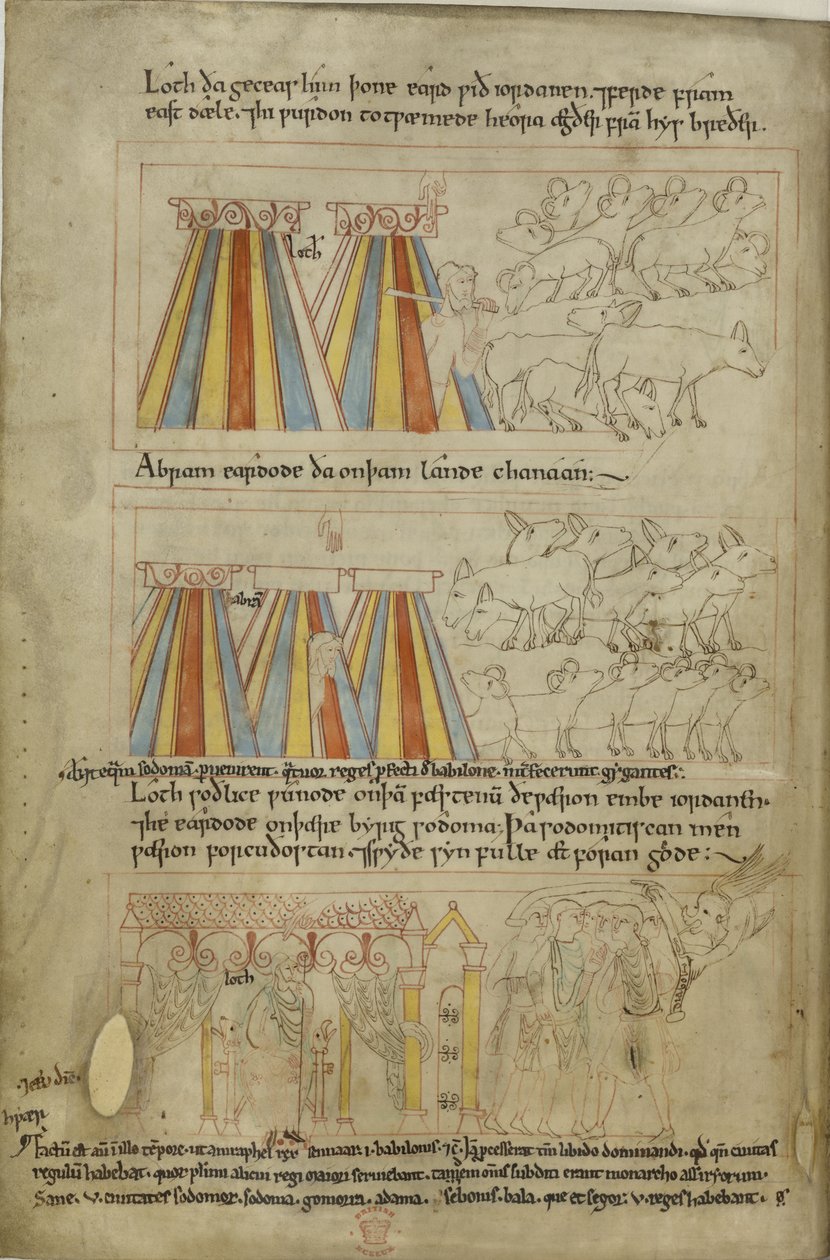 Loth ða geceas him þone eard ƿið iordanen. ⁊ ferde fram
east dæle. ⁊ hi ƿurdon totƿæmede heora ægðer fram hys breðer.
loth
Abram eardode ða on þam lande chanáán:
abrā
sodomā puenirent. quatuor reges babilone. gygantes.
Loth soðlice ƿunode on þā fæstenū ðe ƿæron embe iordanen.
⁊ he eardode on þære byrig sodoma: Þa sodomitiscan men
ƿæron forcuðostan. ⁊ sƿyðe synfulle ætforan gode:
loth
Factū est aū in illo tēpore. ut amraphel rex sennaar .i. babilonis. ⁊c̄. Iā pcesserat tm̄ libido dominandi. qd qn̄ ciuitas
regulum habebat. quor plimi alicui regi maiori seruiebant. tandem om̄s subditi erant monarcho assiriorum.
Sane .v. ciuitates sodomor. sodoma. gomorra. adama. sebonis. bala. que et segor: v. reges habebant.
BRITISH
MUSEUM